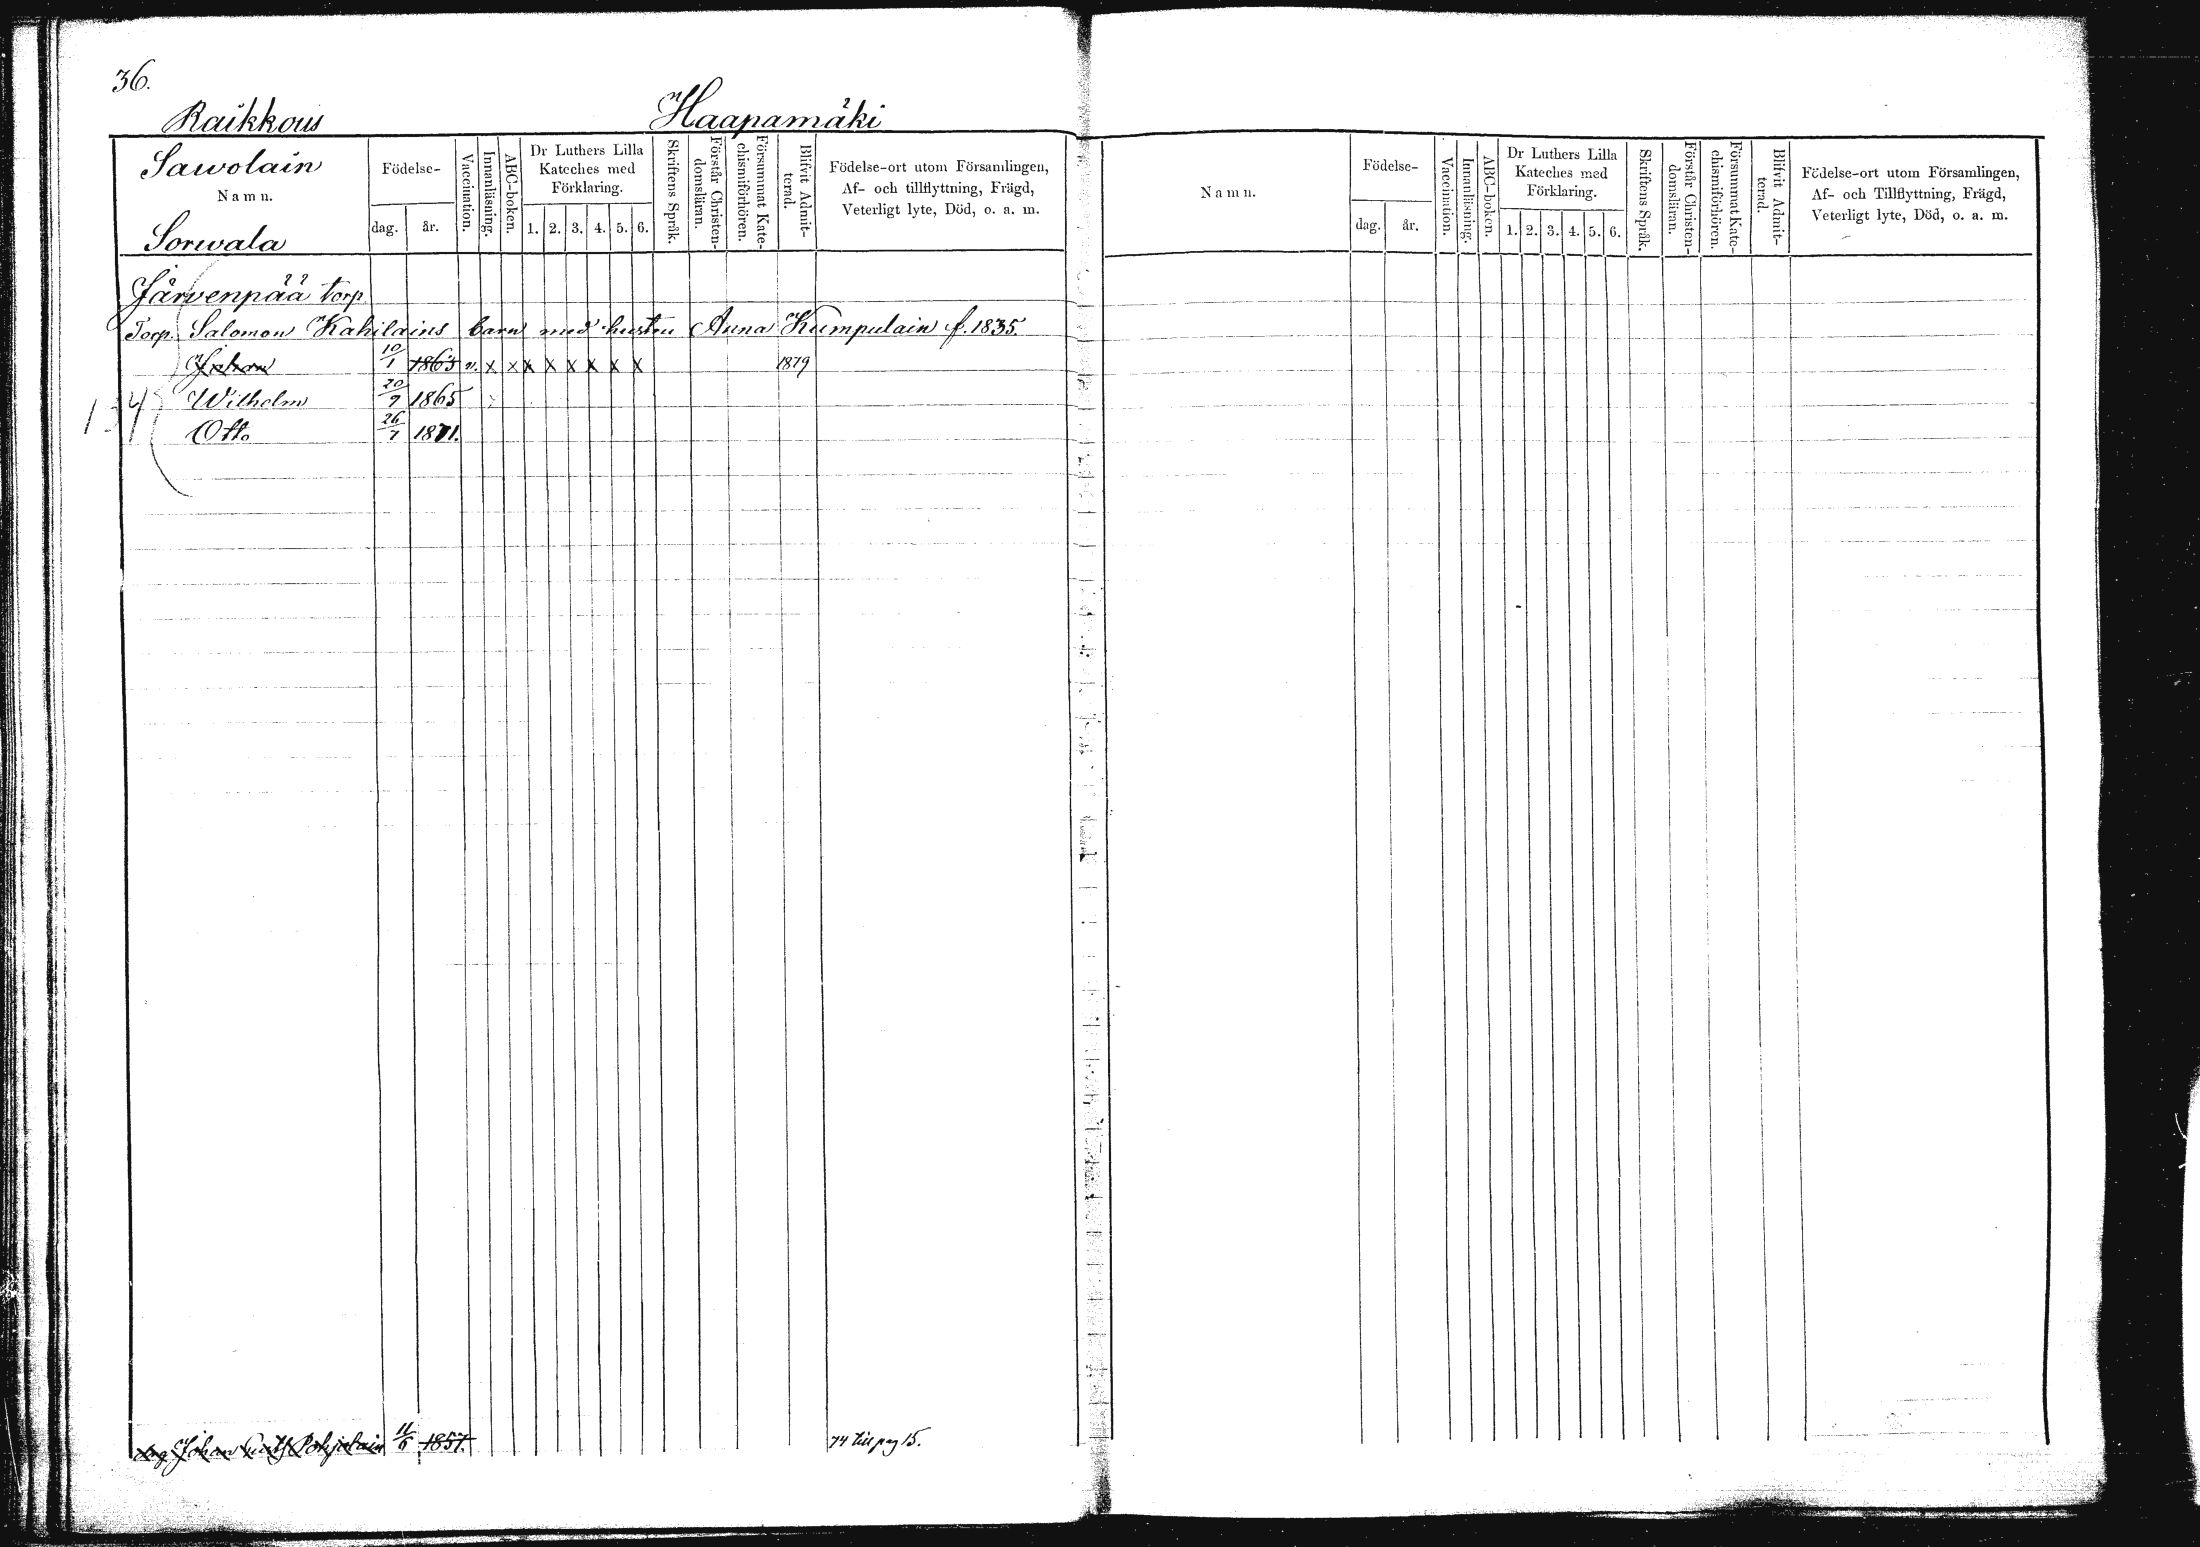 36.
Raikkous Haapamäki
Sawolain
Namn.
Sorwala
Födelse-
dag. år.
Vaccination.
Innanläsning.
ABC-boken.
Dr Luthers Lilla
Kateches med
Förklaring.
1. 2. 3. 4. 5. 6.
Skriftens Språk.
Förstår Christen-
domsläran.
Försummat Kate-
chismiförhören.
Blifvit Admit-
terad.
Födelse-ort utom Församlingen,
Af- och tillflyttning, Frägd,
Veterligt lyte, Död, o. a. m.
Järvenpää torp
Torp. Salomon Kahilains barn med hustru Anna Kumpulain f. 1835.
Johan 10/1 1863 v. x x x x x x x x 1879
Wilhelm 20/7 1865
134
Otto 26/7 1871.
Johan Pohjolain 11/6 1857. 74 till pag 15.
Namn.
Födelse-
dag. år.
Vaccination.
Innanläsning.
ABC-boken.
Dr Luthers Lilla
Kateches med
Förklaring.
1. 2. 3. 4. 5. 6.
Skriftens Språk.
Förstår Christen-
domsläran.
Försummat Kate-
chismiförhören.
Blifvit Admit-
terad.
Födelse-ort utom Församlingen,
Af- och Tillflyttning, Frägd,
Veterligt lyte, Död, o. a. m.